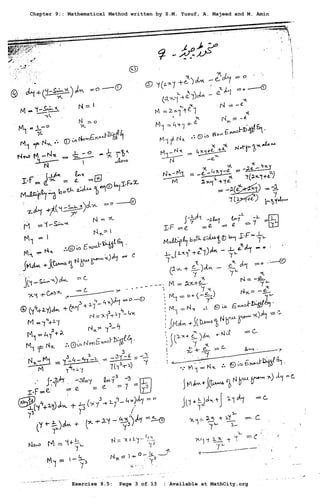 Chapter 9:: Mathematical Method written by S.M. Yusuf, A. Majeed and M. Amin
⑥ dy + (y - Sin x / x) dx = 0 —①
M = y - Sin x / x    N = 1
My = 1/x - 0    Nx = 0
My ≠ Nx ∴ ① is Non Exact Diff Eq.
I.F = e^∫(1/x)dx = e^lnx = x
Multiplying both sides of eq ① by I.F = x
x dy + (y - Sin x) dx = 0 —②
M = y - Sin x    N = x
My = 1    Nx = 1
My = Nx ∴ ② is Exact Diff Eq.
∫M dx + ∫(terms of N free from x) dy = C
∫(y - Sin x) dx = C
xy + Cos x = C
⑧ (y⁴ + 2y) dx + (xy³ + 2y⁴ - 4x) dy = 0 —①
M = y⁴ + 2y    N = xy³ + 2y⁴ - 4x
My = 4y³ + 2    Nx = y³ - 4
My ≠ Nx ∴ ① is Non Exact Diff Eq.
Nx - My / M = y³ - 4 - 4y³ - 2 / y⁴ + 2y = -3y³ - 6 / y(y³ + 2) = -3/y
I.F = e^∫-3/y dy = e^-3lny = e^lny⁻³ = y⁻³ = 1/y³
1/y³ (y⁴ + 2y) dx + 1/y³ (xy³ + 2y⁴ - 4x) dy = 0
(y + 2/y²) dx + (x + 2y - 4x/y³) dy = 0 —②
Now M = y + 2/y²    N = x + 2y - 4x/y³
My = 1 - 4/y³    Nx = 1 + 0 - 4/y³
⑦ y(2xy + eˣ) dx - eˣ dy = 0
(2xy² + eˣy) dx - eˣ dy = 0 —①
M = 2xy² + yeˣ    N = -eˣ
My = 4xy + eˣ    Nx = -eˣ
My ≠ Nx ∴ ① is Non Exact Diff Eq.
My - Nx / N = 4xy + eˣ + eˣ / -eˣ Not f x alone
Nx - My / M = -eˣ - 4xy - eˣ / 2xy² + yeˣ = -2eˣ - 4xy / y(2xy + eˣ)
= -2(eˣ + 2xy) / y(2xy + eˣ) = -2/y
I.F = e^∫-2/y dy = e^lny⁻² = y⁻² = 1/y²
Multiply both sides of ① by I.F = 1/y²
1/y² (2xy² + yeˣ) dx - 1/y² eˣ dy = 0
(2x + eˣ/y) dx - eˣ/y² dy = 0 —②
M = 2x + eˣ/y    N = -eˣ/y²
My = 0 + (-eˣ/y²)    Nx = -eˣ/y²
My = Nx ∴ ② is Exact Diff Eq.
∫M dx + ∫(terms of N free from x) dy = C
∫(2x + eˣ/y) dx + Nil = C
x² + eˣ/y = C
∵ My = Nx ∴ ② is Exact Diff Eq.
∫M dx + ∫(terms of N free from x) dy = C
∫(y + 2/y²) dx + ∫2y dy = C
xy + 2x/y² + 2y²/2 = C
xy + 2x/y² + y² = C
Exercise 9.5: Page 3 of 13 : Available at MathCity.org